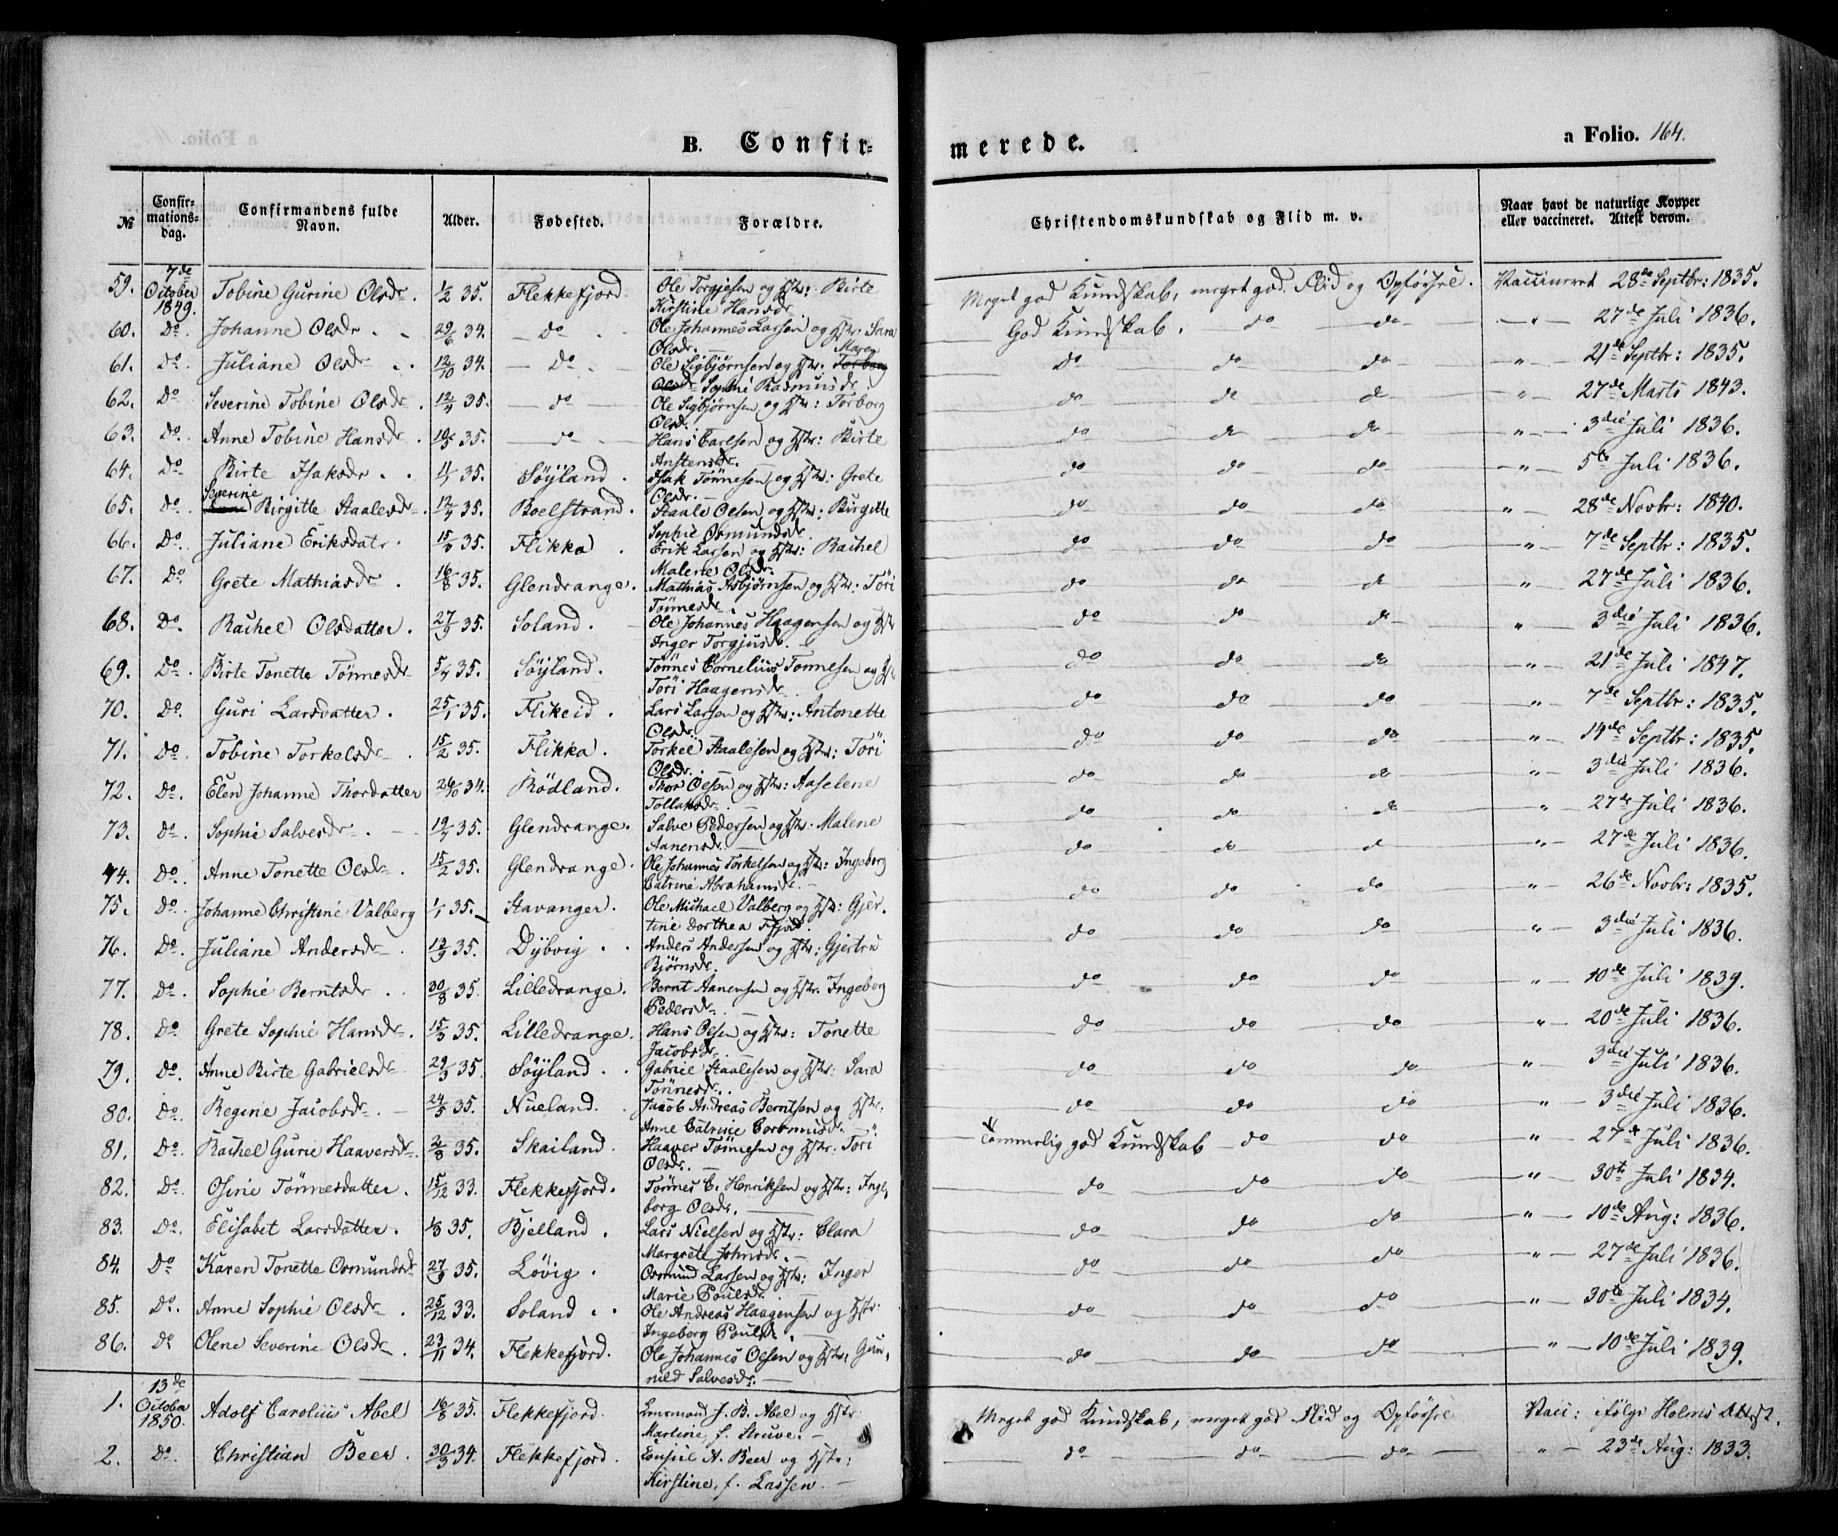 B. Confir-
merede.
a Folio. 164.
№
Confir-
mations-
dag.
Confirmandens fulde
Navn.
Alder.
Fødested.
Forældre.
Christendomskundskab og Flid m. v.
Naar havt de naturlige Kopper
eller vaccineret. Attest derom.
59. 7de October 1849. Tobine Gurine Olsdr. 1/2 35. Flekkefjord. Ole Torgjesen og Hstr: Birte Kirstine Hansdr. Meget god Kundskab, meget god Flid og Opførsel. Vaccineret 28de Septbr: 1835.
60. Do Johanne Olsdr 29/6 34. Do Ole Johannes Larsen og Hstr: Sara Olsdr. God Kundskab. do do " 27de Juli 1836.
61. Do. Juliane Olsdr 12/10 34. Do Ole Sigbjørnsen og Hstr. Maren Sophie Rasmusdr do do do " 21de Septbr: 1835.
62. Do Severine Tobine Olsdr. 12/4 35. do Ole Sigbjørnsen og Hstr: Torborg Olsdr. do do do " 27de Marts 1843.
63. Do. Anne Tobine Hansdr. 35. do Hans Carlsen og Hstr: Birte Anstensdr. do do do " 3die Juli 1836.
64. Do Birte Isaksdr 35. Søyland. Isak Tönnesen og Hstr: Grete Olsdr. do do do " 5te Juli 1836.
65. Do. Severine Birgitte Staalesdr. 12/4 35. Boelstrand. Staale Olsen og Hstr: Birgitte Sophie Osmundsdr. do do do " 28de Novbr: 1840.
66. Do. Juliane Eriksdatr. 35. Flikka. Erik Larsen og Hstr: Rachel Malene Olsdr. do do do " 7de Septbr: 1835.
67. Do Grete Mathiasdr. 16/8 35. Glendrange. Mathias Asbjørnsen og Hstr: Töri Tönnesdr. do do do " 27de Juli 1836.
68. Do. Rachel Olsdatter. 27/9 35. Soland. Ole Johannes Haagensen og Hstr Inger Torgjusdr. do do do " 3die Juli 1836.
69. Do. Birte Tonette Tönnesdr 5/4 35. Søyland. Tönnes Cornelius Tonnesen og Hstr Töri Haagensdr. do do do " 21de Juli 1847.
70. Do. Guri Larsdatter. 25/1 35. Flikeid. Lars Larsen og Hstr: Antonette Olsdr. do do do " 7de Septbr: 1835.
71. Do. Tobine Torkelsdr 15/2 35. Flikka. Torkel Staalesen og Hstr: Töri Olsdr. do do do " 14de Septbr: 1835.
72. Do. Elen Johanne Thordatter 26/10 34. Rödland. Thor Olsen og Hstr: Aaselene Tollaksdr. do do do " 3die Juli 1836.
73. Do Sophie Salvesdr. 19/4 35. Glendrange. Salve Pedersen og Hstr: Malene Aanensdr. do do do " 27de Juli 1836.
74. Do. Anne Tonette Olsdr. 15/2 35. Glendrange. Ole Johannes Torkelsen og Hstr: Ingeborg Catrine Abrahamsdr. do do do " 27de Juli 1836.
75. Do. Johanne Christine Valberg 1/1 35. Stavanger. Ole Michael Valberg og Hstr: Gjertine Dorthea Fjord. do do do " 26de Novbr: 1835.
76. Do. Juliane Andersdr 13/9 35. Dybvig. Anders Andersen og Hstr: Gjertru Bjørnsdr. do do do " 3die Juli 1836.
77. Do. Sophie Berntsdr 30/8 35. Lilledrange. Bernt Aanensen og Hstr. Ingeborg Pedersdr. do do do " 10de Juli 1839.
78. Do Grete Sophie Hansdr. 15/3 35. Lilledrange. Hans Olsen og Hstr: Tonette Jacobsdr. do do do " 20de Juli 1836.
79. Do. Anne Birte Gabrielsdr 29/3 35. Søyland. Gabriel Staalesen og Hstr: Sara Tönnesdr. do do do " 3die Juli 1836.
80. Do. Regine Jacobsdr. 24/5 35. Nueland. Jacob Andreas Berntsen og Hstr: Anne Catrine dr. do do do " 3die Juli 1836.
81. Do. Rachel Gurie Haaversdr. 2/8 35. Skailand. Haaver Tönnesen og Hstr: Töri Olsdr. Temmelig god Kundskab do do " 27de Juli 1836.
82. Do. Osine Tönnesdatter. 15/12 33. Flekkefjord. Tönnes C. Henriksen og Hstr: Ingeborg Olsdr. do do do " 30te Juli 1834.
83. Do. Elisabet Larsdatter. 1/8 35. Bjelland. Lars Nielsen og Hstr: Clara Margrete Johnsdr. do do do " 10de Aug: 1836.
84. Do Karen Tonette Osmundsdr 27/9 35. Lövig. Osmund Larsen og Hstr: Inger Marie Poulsdr. do do do " 27de Juli 1836.
85. Do. Anne Sophie Olsdr. 25/12 33. Soland. Ole Andreas Haagensen og Hstr. Ingeborg Poulsdr. do do do " 30te Juli 1834.
86. Do Olene Severine Olsdr. 23/11 34. Flekkefjord. Ole Johannes Olsen og Hstr: Gunnild Salvesdr. do do do " 10de Juli 1839.
1. 13de October 1850. Adolf Carolius Abel 16/8 35. Flekkefjord. J. B. Abel og Hstr Martine f. Struve. Meget god Kundskab, meget god Flid og Opførsel Vacc: ifølge Holms Attest.
2. Do. Christian Beer. 30/3 34. Flekkefjord. Consul A. Beer og Hstr: Kirstine, f. Lassen. do do do " 23de Aug: 1833.